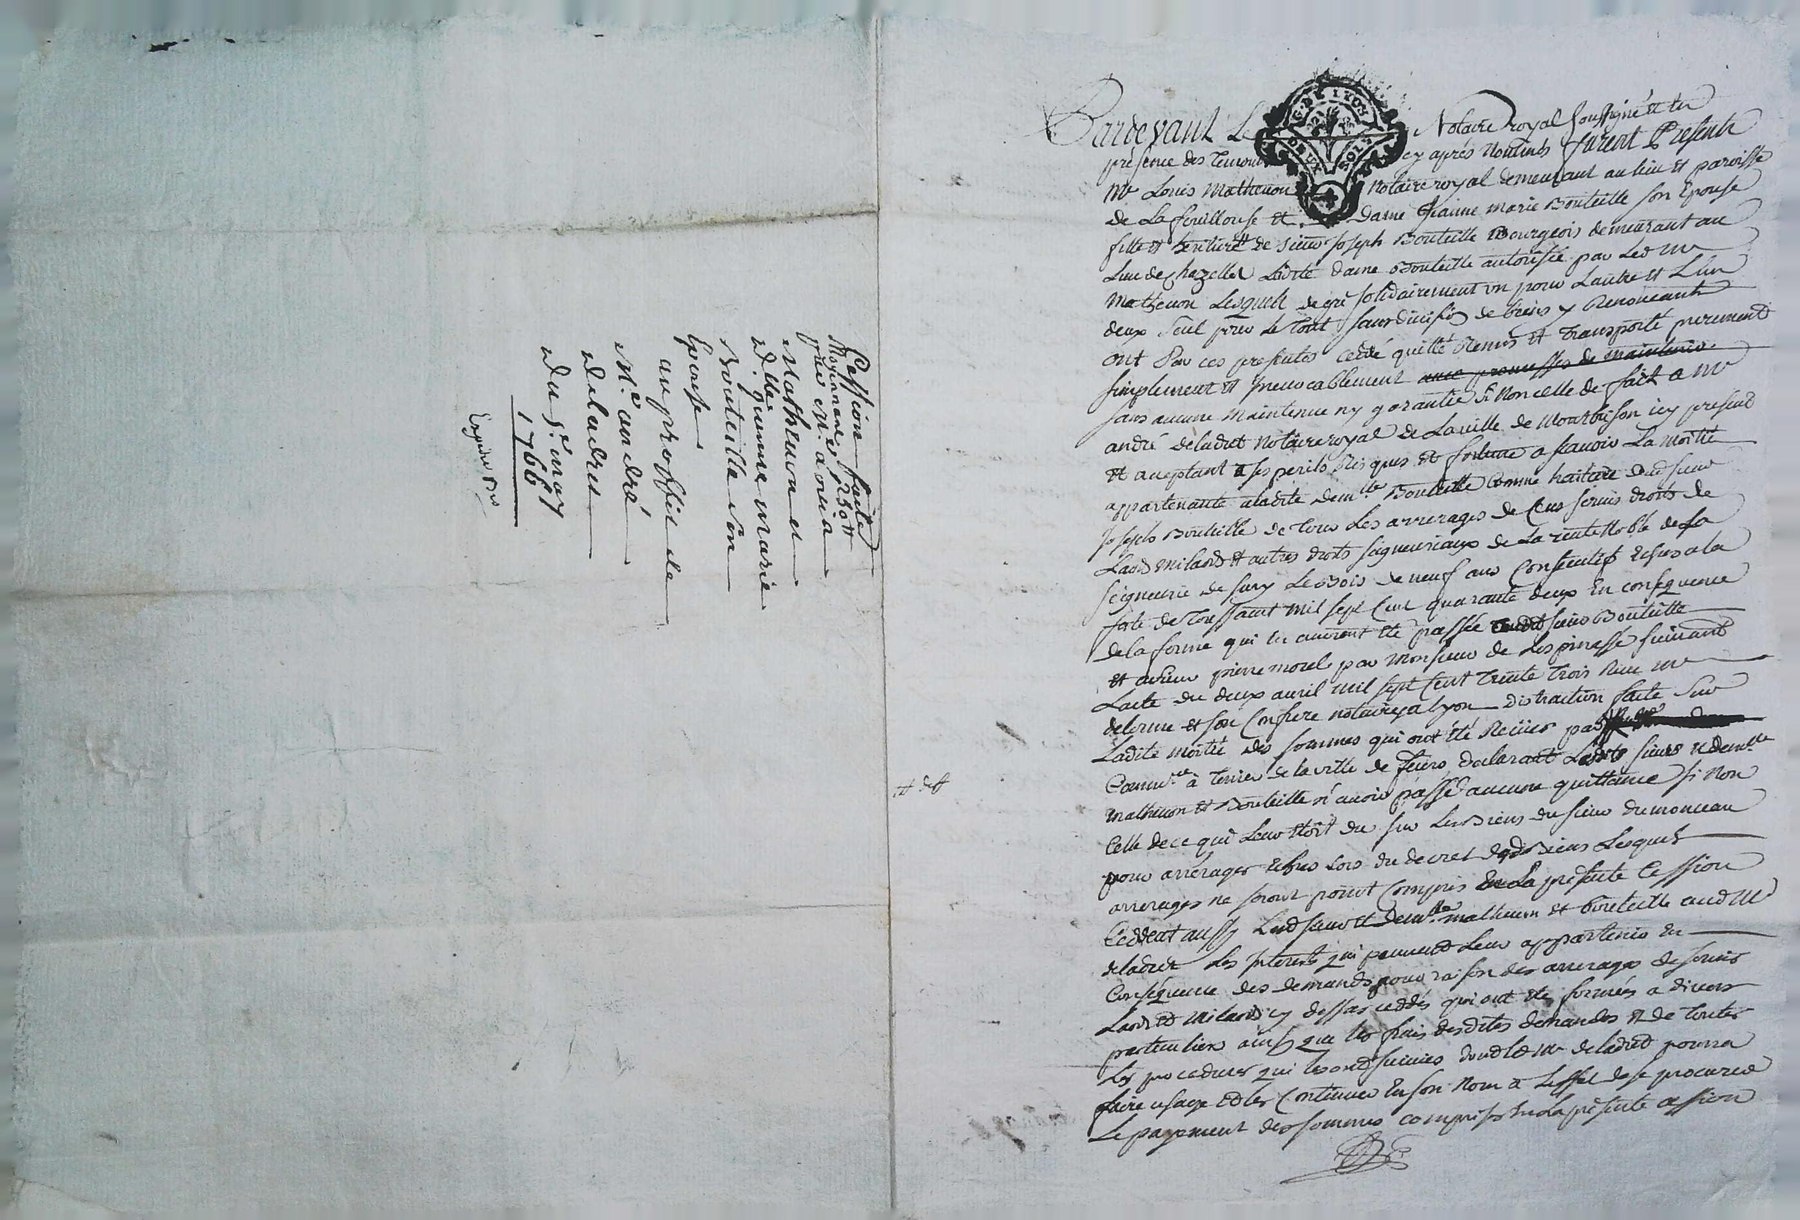 Cession faite
moyennant 250 ₶
par Mr. Louis
Mathevon et
Dlle jeanne marie
Bouteille son
Epouse
au proffit de
Me andré
deladret
du 5e may
1766
G. DE LYON
DEUX SOLS
Pardevant Le Notaire royal soussigné et En
présence des Temoins cy après Nommés furent Presents
Me Louis Mathevon Notaire royal demeurant au lieu et paroisse
de La fouillouse et Dame Jeanne Marie Bouteille son Epouse
fille et heritiere de sieur Joseph Bouteille Bourgeois demeurant au
Lieu de chazelles Ladite dame Bouteille autorisée par Led Me
Mathevon Lesquels de gré solidairement un pour Lautre et Lun
deux seul pour Le Tout sans division de biens y Renonceants
ont Par ces presentes cedé quitté Remis et Transporté purement
simplement et irrevocablement avec promesses de maintenir
sans aucune maintenue ny garantie si Non celle de fait a Me
andré deladret Notaire royal de La ville de Montbrison icy present
et acceptant a ses perils Risques et fortune a scavoir La moitié
appartenante a ladite demlle Bouteille Comme heritiere dud sieur
Joseph Bouteille de Tous Les arrerages de Cens servis droits de
Laods milaods et autres droits seigneuriaux de La rente Noble de La
seigneurie de sury Le Bois de neuf ans Consecutifs echus a la
fete de Toussaint mil sept Cent quarante deux En consequence
de la ferme qui en auroit été passée audit sieur Bouteille
et a sieur pierre morel par Monsieur de Lespinasse suivant
Lacte du deux avril mil sept Cent Trente Trois Recu Me
delerme et son Confrere notaires a lyon distraction faite sur
Ladite moitié des sommes qui ont été Recües par
Commre à Terrier de la ville de feurs declarant Lesdits sieur et demlle
mathevon et Bouteille n'avoir passé aucune quittance si Non
Celle de ce qui Leur etoit du sur Les Biens du sieur dumonceau
pour arrérages echus Lors du decret desd Biens Lesquels
arrerages ne seront point Compris En La presente Cession
Cedent aussy Lesd sieur et demlle mathevon et bouteille aud Me
deladret Les Interets qui peuvent Leur appartenir En
Consequence des demandes pour raison des arrerages de servis
Laods et milaods cy dessus cedés qui ont été formées a divers
particuliers ainsy que les frais desdites demandes et de Toutes
Les procedures qui les ont suivies dont led Me deladret pourra
faire usage et les Continuer En son Nom a Leffet de se procurer
Le payement des sommes comprises En La presente cession